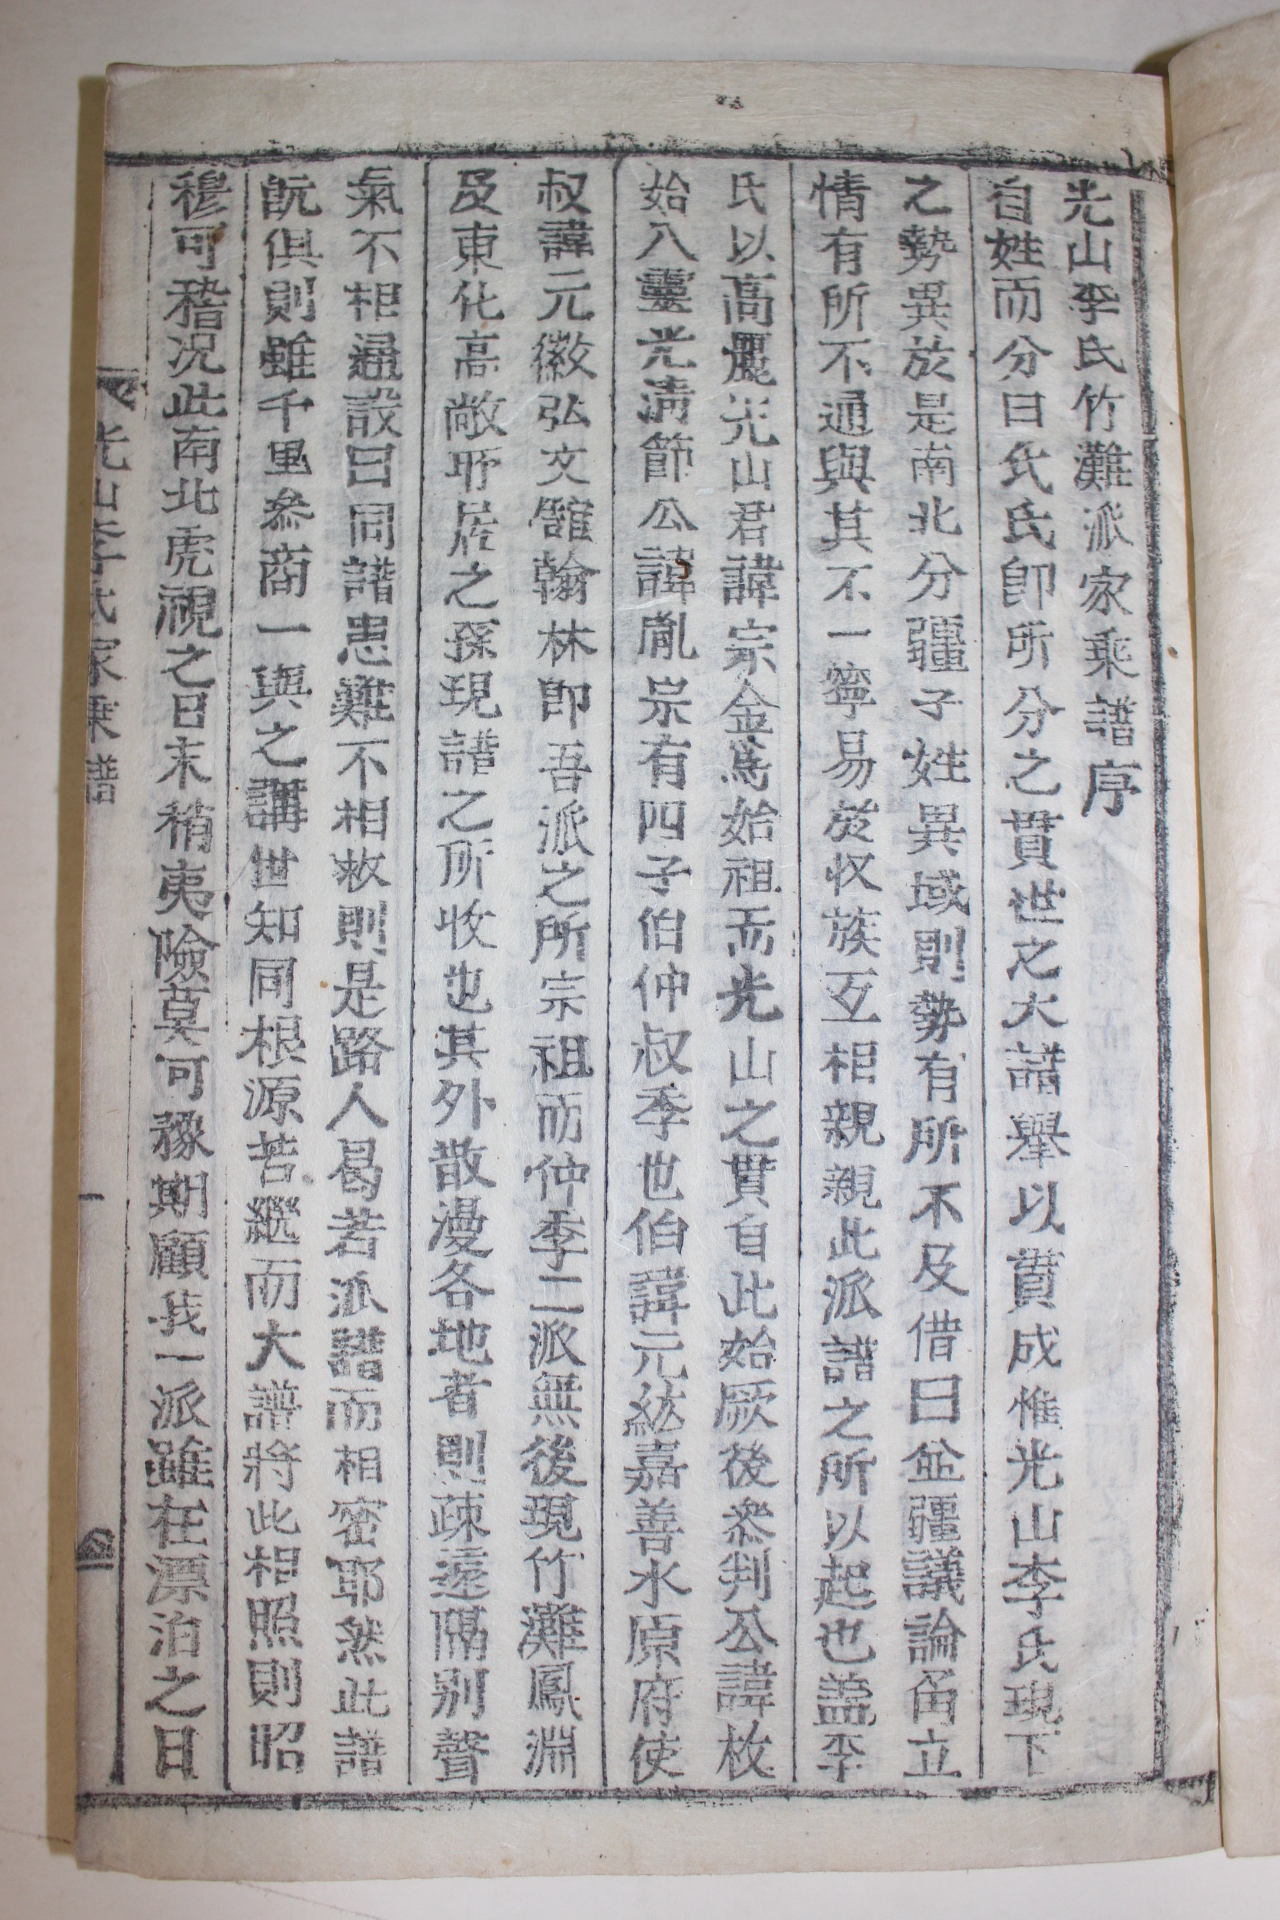 光山李氏竹灘派家乘譜序
自姓而分曰氏氏卽所分之貫世之大譜舉以貫成惟光山李氏現下
之勢異於是南北分疆子姓異域則勢有所不及借曰並疆議論角立
情有所不通與其不一寧易於收族互相親親此派譜之所以起也盖李
氏以高麗光山君諱宗金爲始祖而光山之貫自此始厥後叅判公諱枚
始入靈光淸節公諱胤宗有四子伯仲叔季也伯諱元紘嘉善水原府使
叔諱元徽弘文舘翰林卽吾派之所宗祖而仲季二派無後現竹灘鳳淵
及東化高敞所居之孫現譜之所收也其外散漫各地者則疎遠隔别聲
氣不相通設曰同譜患難不相救則是路人曷若派譜而相密耶然此譜
旣俱則雖千里叅商一與之講世知同根源苦繼而大譜將此相照則昭
穆可稽况此南北虎視之日未稍夷險莫可豫期顧我一派雖在漂泊之日
光山李氏家乘譜
一